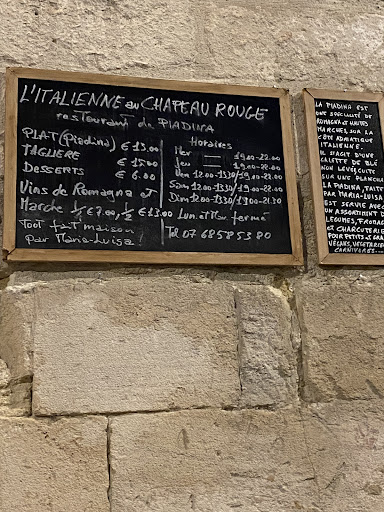 L'ITALIENNE au CHAPEAU ROUGE
restaurant de PIADINA
PLAT (Piadina) € 13.00
TAGLIERE € 15.00
DESSERTS € 6.00
Vins de Romagna et
Marche 1/4 € 7.00, 1/2 € 13.00
Tout fait maison
par Marie-Luisa!
Horaires
Mer — 19.00-22.00
Jeu — 19.00-22.00
Ven 12.00-13.30/19.00-22.00
Sam 12.00-13.30/19.00-22.00
Dim 12.00-13.30/19.00-21.30
Lun. et Mar. fermé
Tel 07 68 58 53 80
LA PIADINA EST
UNE SPECIALITÉ DE
ROMAGNA ET HAUTES
MARCHES, SUR LA
CÔTE ADRIATIQUE
ITALIENNE.
IL S'AGIT D'UNE
GALETTE DE BLÉ
NON LEVÉE CUITE
SUR UNE PLANCHA
LA PIADINA, FAITE
PAR MARIA-LUISA
EST SERVIE AVEC
UN ASSORTIMENT D
LEGUMES, FROMAG
ET CHARCUTERIE
POUR PETITS ET GRA
VÉGNES, VEGETARIE
CARNIVORES...